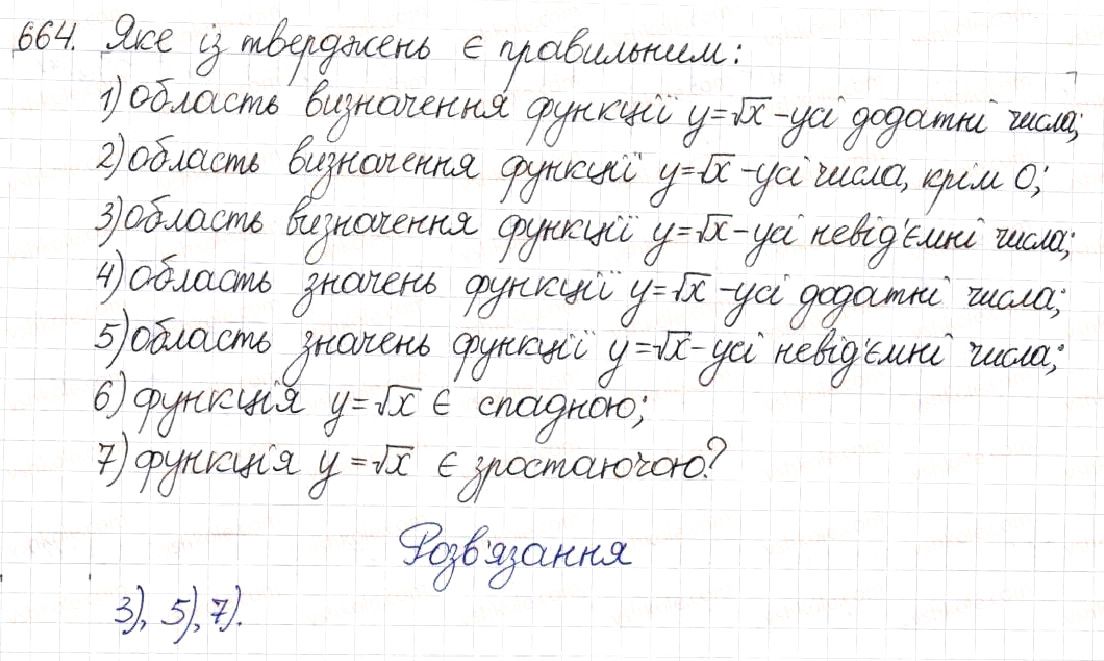 664. Яке із тверджень є правильним:
1) область визначення функції y=√x - усі додатні числа;
2) область визначення функції y=√x - усі числа, крім 0;
3) область визначення функції y=√x - усі невід'ємні числа;
4) область значень функції y=√x - усі додатні числа;
5) область значень функції y=√x - усі невід'ємні числа;
6) функція y=√x є спадною;
7) функція y=√x є зростаючою?
Розв'язання
3), 5), 7).